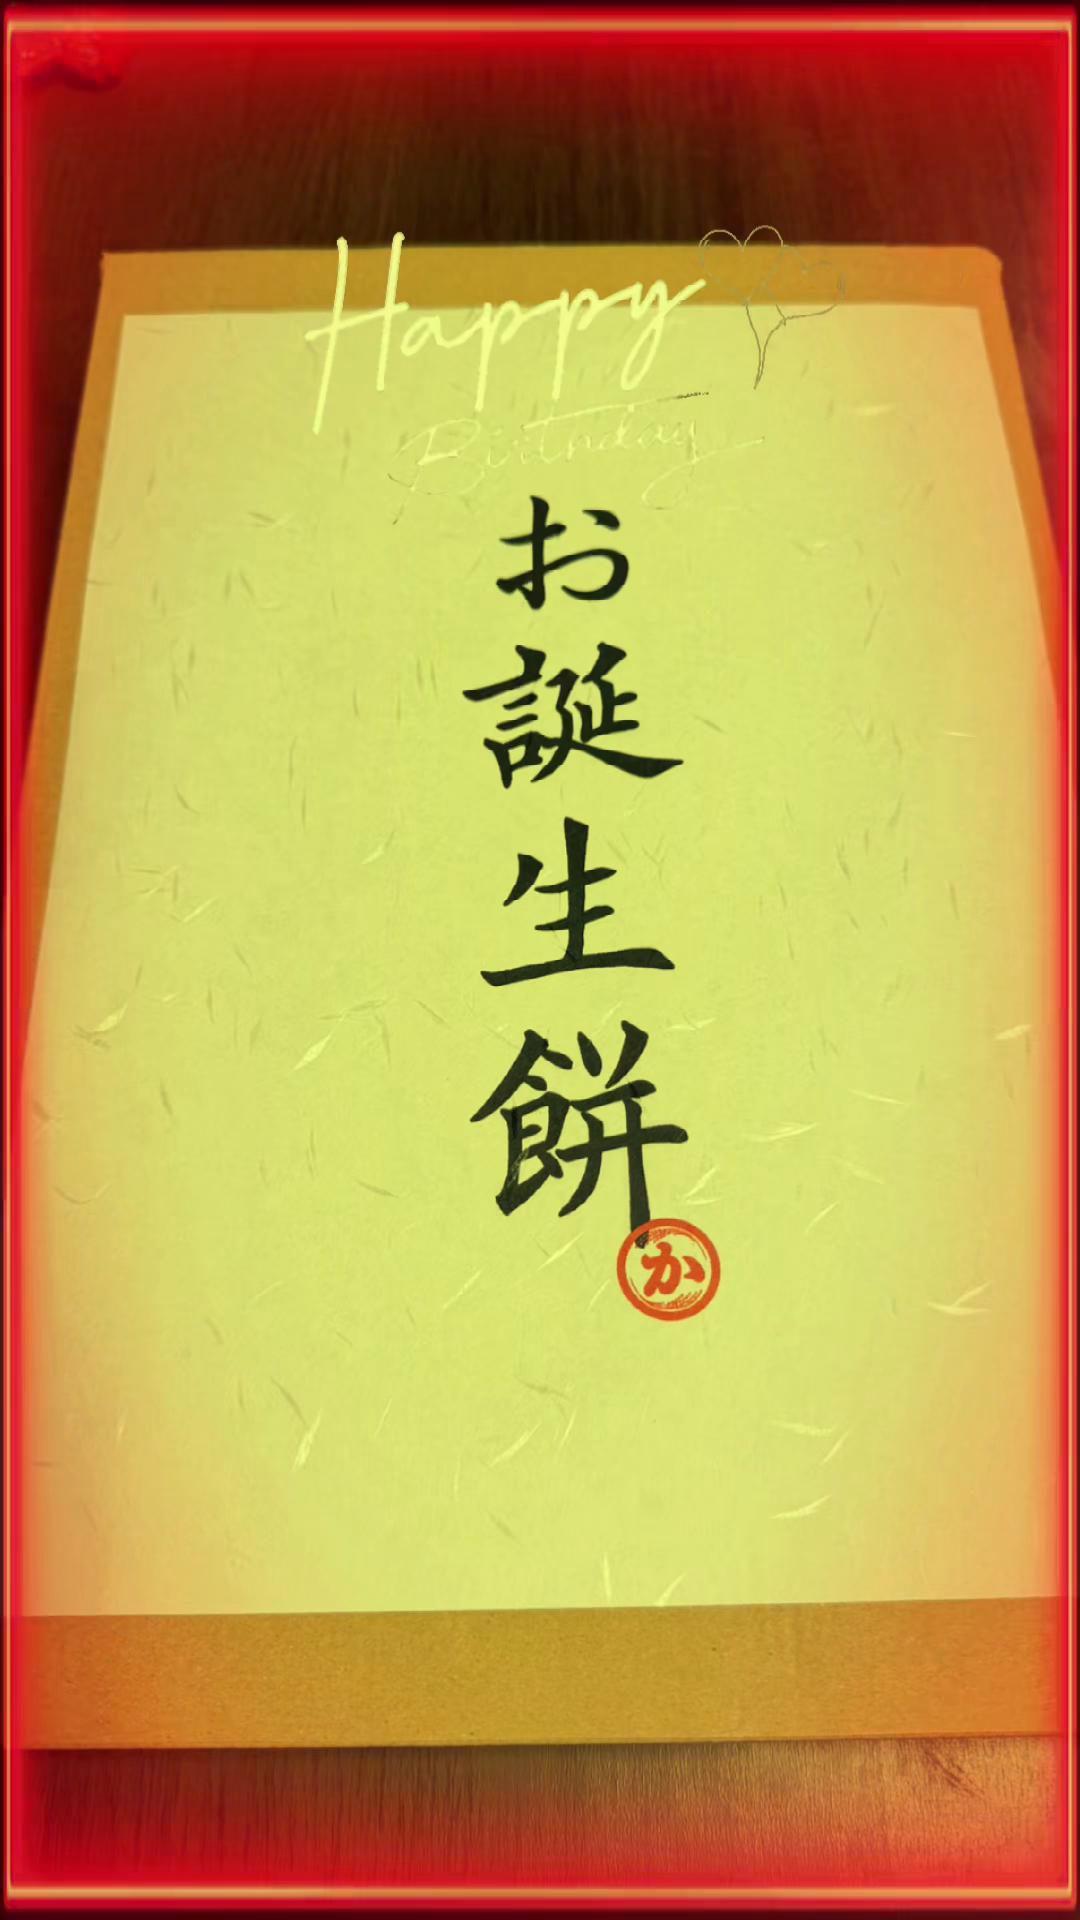 Happy
Birthday
お誕生餅
か